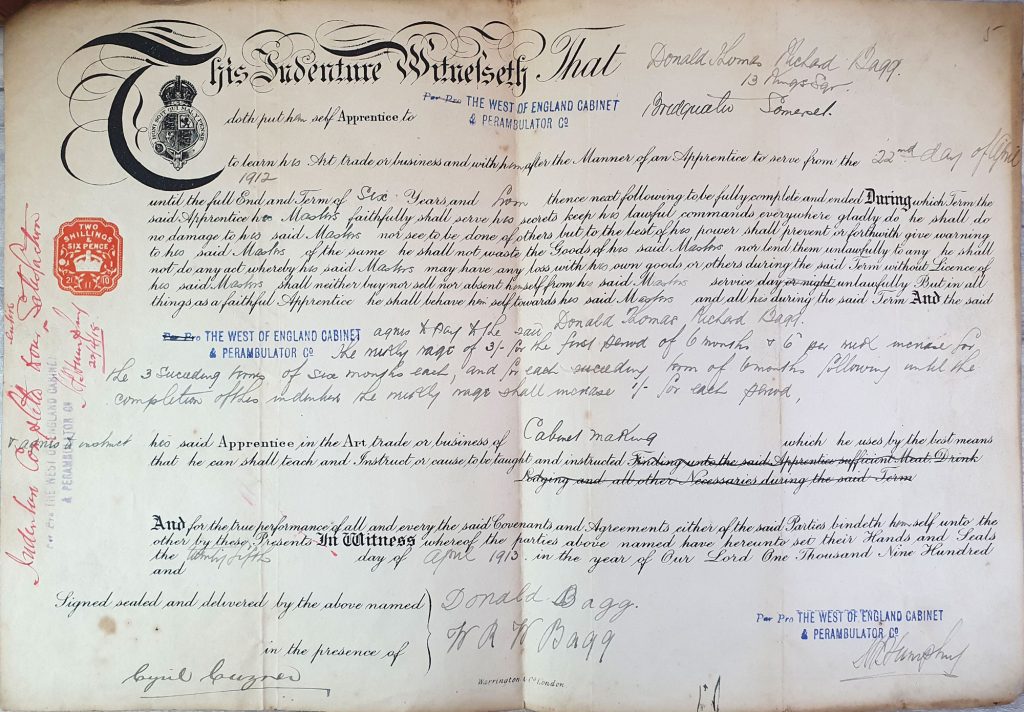 5
This Indenture Witnesseth That Donald Thomas Richard Bagg.
13 Kings Sqr.
Per Pro THE WEST OF ENGLAND CABINET
& PERAMBULATOR Co
Bridgwater Somerset.
HONI SOIT QUI MAL Y PENSE
doth put him self Apprentice to
to learn his Art trade or business and with him after the Manner of an Apprentice to serve from the 22nd day of April
1912
until the full End and Term of Six Years and from thence next following to be fully complete and ended During which Term the
said Apprentice his Masters faithfully shall serve his secrets keep his lawful commands everywhere gladly do he shall do
no damage to his said Masters nor see to be done of others but to the best of his power shall prevent or forthwith give warning
to his said Masters of the same he shall not waste the Goods of his said Masters nor lend them unlawfully to any he shall
not do any act whereby his said Masters may have any loss with his own goods or others during the said Term without Licence of
his said Masters shall neither buy nor sell nor absent himself from his said Masters service day or night unlawfully But in all
things as a faithful Apprentice he shall behave him self towards his said Masters and all his during the said Term And the said
Per Pro THE WEST OF ENGLAND CABINET
& PERAMBULATOR Co
agrees to pay to the said Donald Thomas Richard Bagg.
the weekly wage of 3/- for the first period of 6 months & 6d per week increase for
the 3 succeeding terms of six months each, and for each succeeding term of 6 months following until the
completion of this indenture the weekly wage shall increase 1/- for each period,
& agrees to instruct his said Apprentice in the Art trade or business of Cabinet making which he uses by the best means
that he can shall teach and Instruct or cause to be taught and instructed Finding unto the said Apprentice sufficient Meat, Drink
Lodging and all other Necessaries during the said Term
And for the true performance of all and every the said Covenants and Agreements either of the said Parties bindeth him self unto the
other by these Presents In Witness whereof the parties above named have hereunto set their Hands and Seals
the twenty fifth day of April 1913 in the year of Our Lord One Thousand Nine Hundred
and
Signed sealed and delivered by the above named
in the presence of
Donald Bagg.
W R W Bagg
Cyril Cuzner
Per Pro THE WEST OF ENGLAND CABINET
& PERAMBULATOR Co
Humphry
Warrington & Co London.
TWO
SHILLINGS
&
SIX PENCE
Indenture Completed to our Satisfaction
Per Pro THE WEST OF ENGLAND CABINET
& PERAMBULATOR Co
Humphry
22/4/18